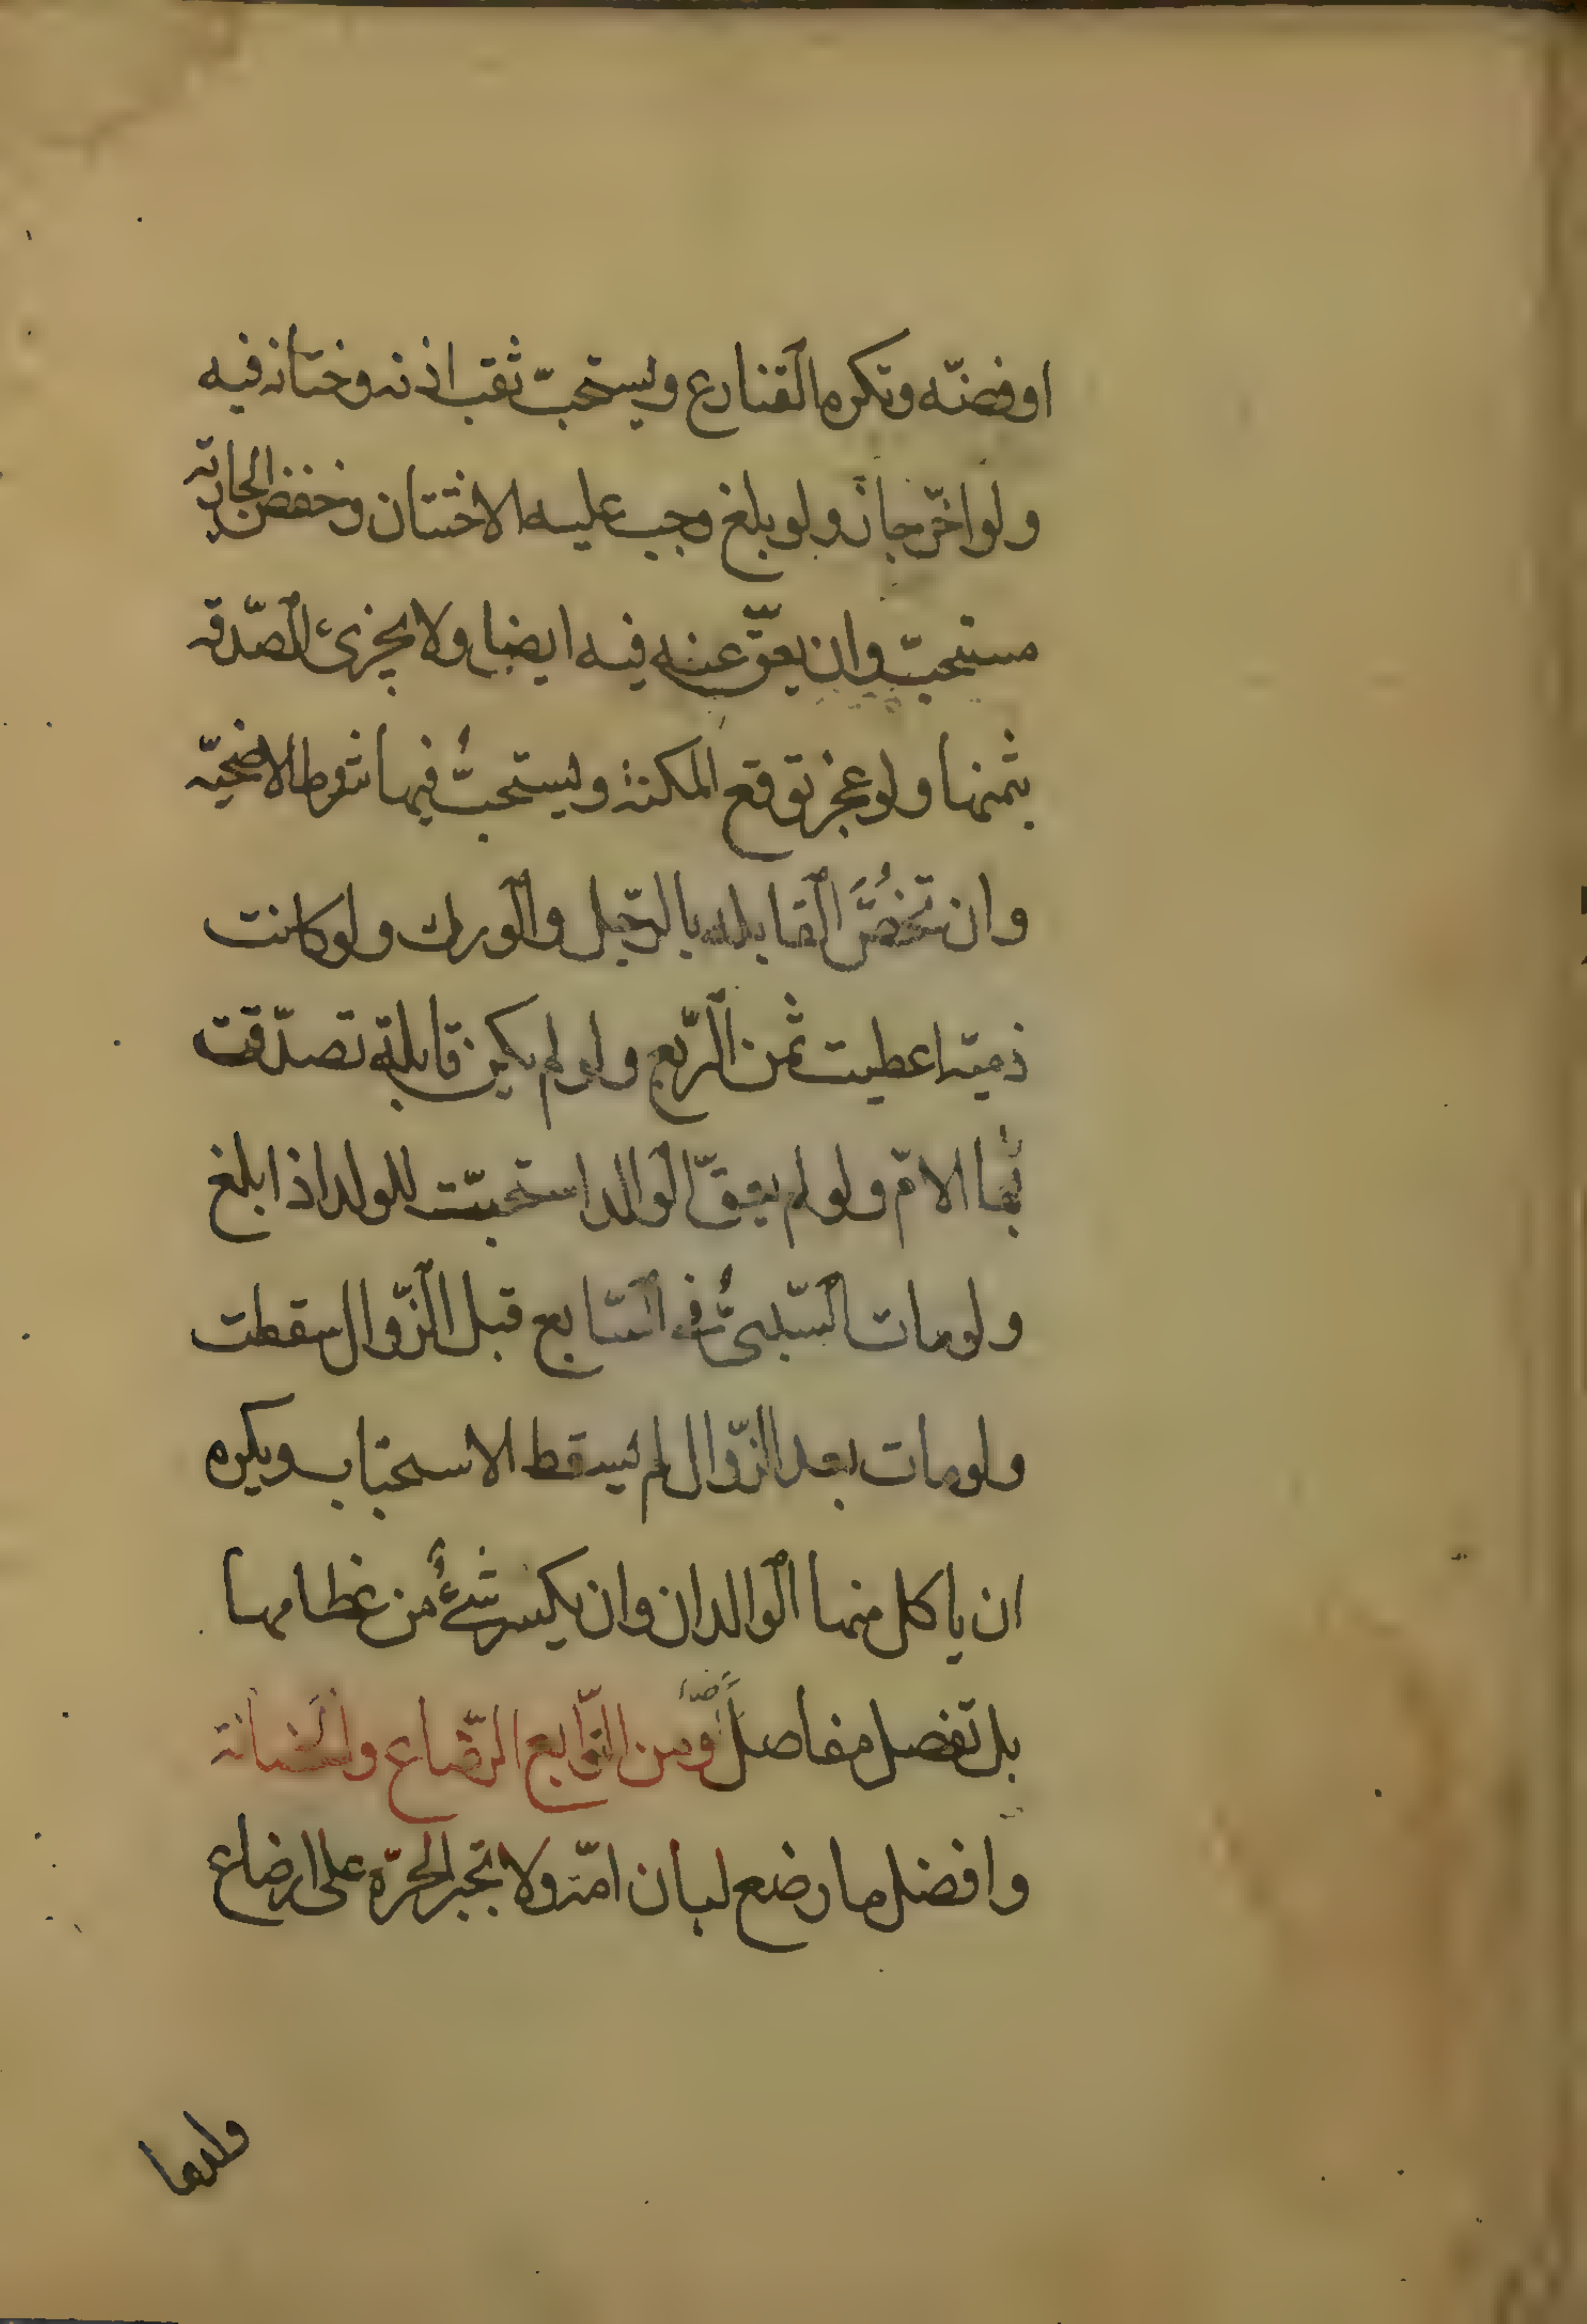 او فضّه وتكره القنازع ويستحبّ ثقب اذنه وختانه فيه
ولو اخّر جاز ولو بلغ وجب عليه الاختتان وخفض الجاريه
مستحبّ وان يعقّ عنه فيه ايضا ولا يجزئ الصّدقه
بثمنها ولو عجز توقع المكنة ويستحبُّ فيها شروط الاضحيّه
وان تخُصَّ القابله بالرّجل والورك ولو كانت
ذميّه اعطيت ثمن الرّبع ولو لم يكن قابلة تصدّقت
بها الامّ ولو لم يعقّ الوالد استحبّت للولد اذا بلغ
ولو مات الصّبىُّ فى السّابع قبل الزّوال سقطت
ولو مات بعد الزّوال لم يسقط الاستحباب ويكره
ان ياكل منها الوالدان وان يكسر شئٌ من عظامها
بل تفصل مفاصل ومن التّوابع الرّضاع والحضانة
وافضل ما رضع لبان امّه ولا تجبر الحرّة على ارضاع
ولدها